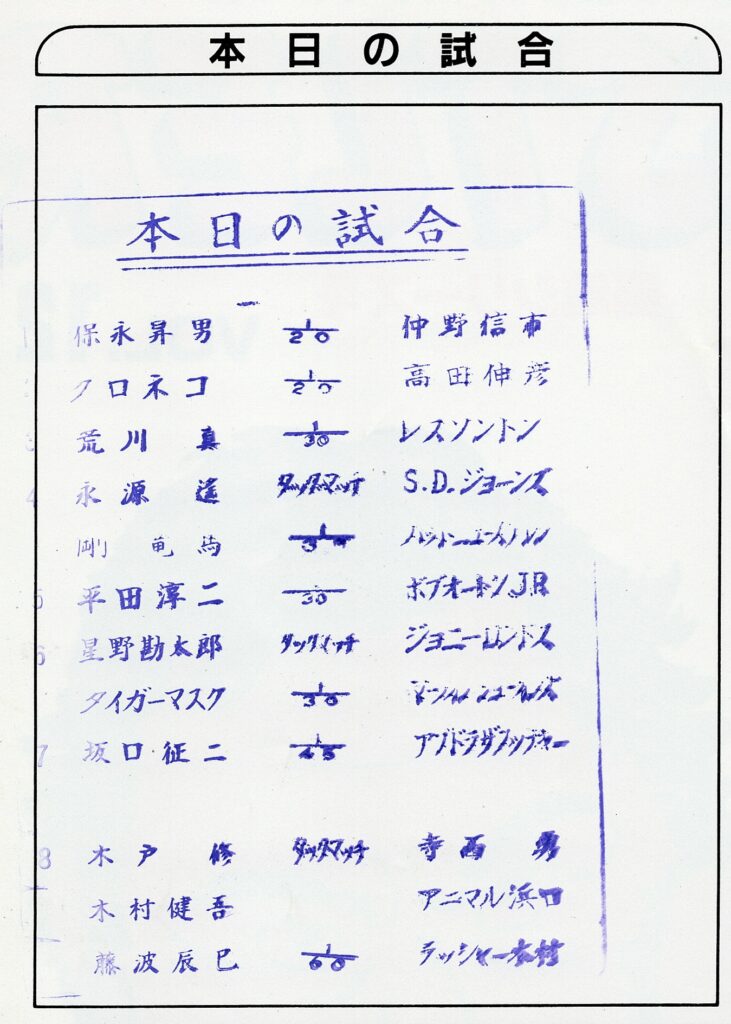 本日の試合
本日の試合
1 保永昇男 1/20 仲野信市
2 クロネコ 1/20 高田伸彦
3 荒川真 1/30 レスソントン
4 永源遙 タッグマッチ S.D.ジョーンズ
剛竜馬 1/30
5 平田淳二 1/30 ボブオートンJR
6 星野勘太郎 タッグマッチ ジョニーロンドス
タイガーマスク 1/30
7 坂口征二 1/45 アブドラザブッチャー
8 木戸修 タッグマッチ 寺西勇
木村健吾 アニマル浜口
藤波辰巳 1/60 ラッシャー木村